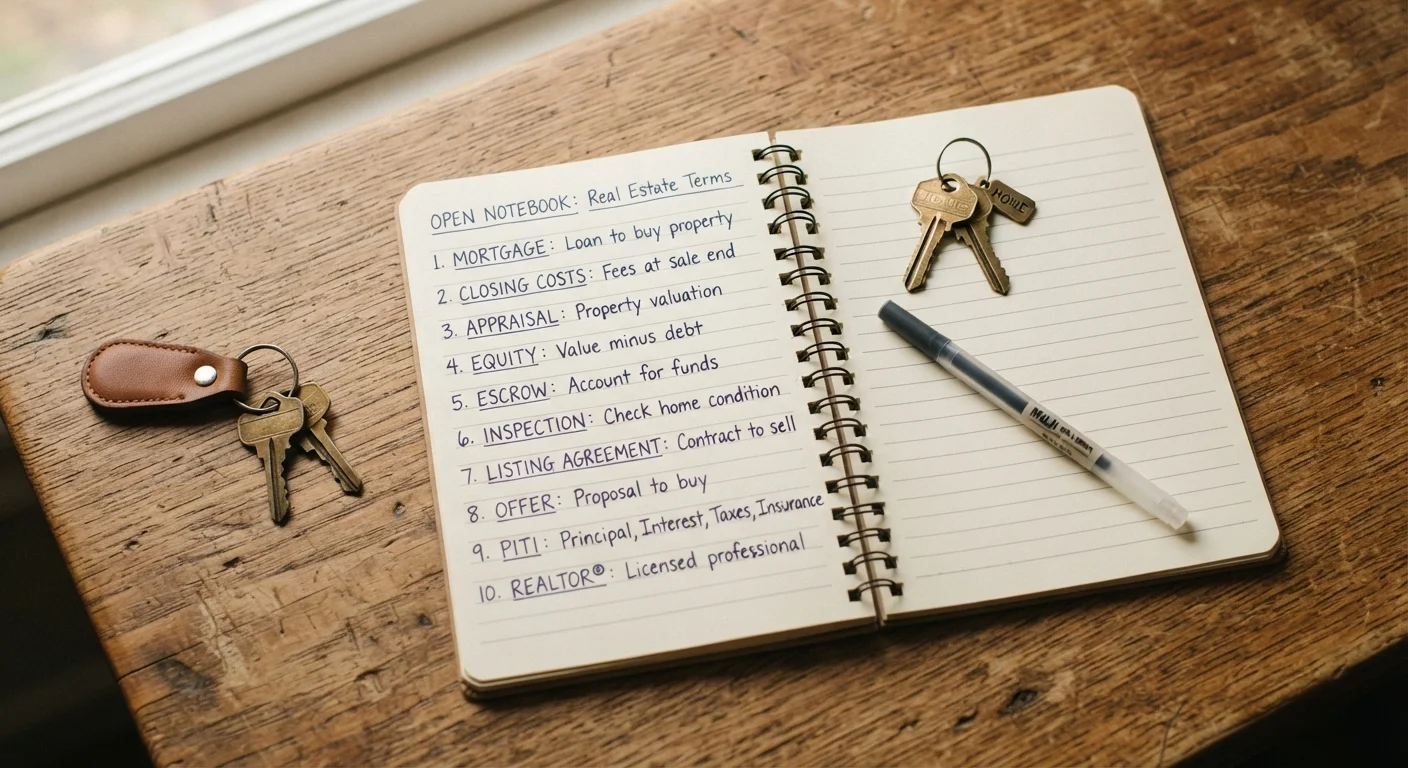 OPEN NOTEBOOK: Real Estate Terms
1. MORTGAGE: Loan to buy property
2. CLOSING COSTS: Fees at sale end
3. APPRAISAL: Property valuation
4. EQUITY: Value minus debt
5. ESCROW: Account for funds
6. INSPECTION: Check home condition
7. LISTING AGREEMENT: Contract to sell
8. OFFER: Proposal to buy
9. PITI: Principal, Interest, Taxes, Insurance
10. REALTOR®: Licensed professional
HOME